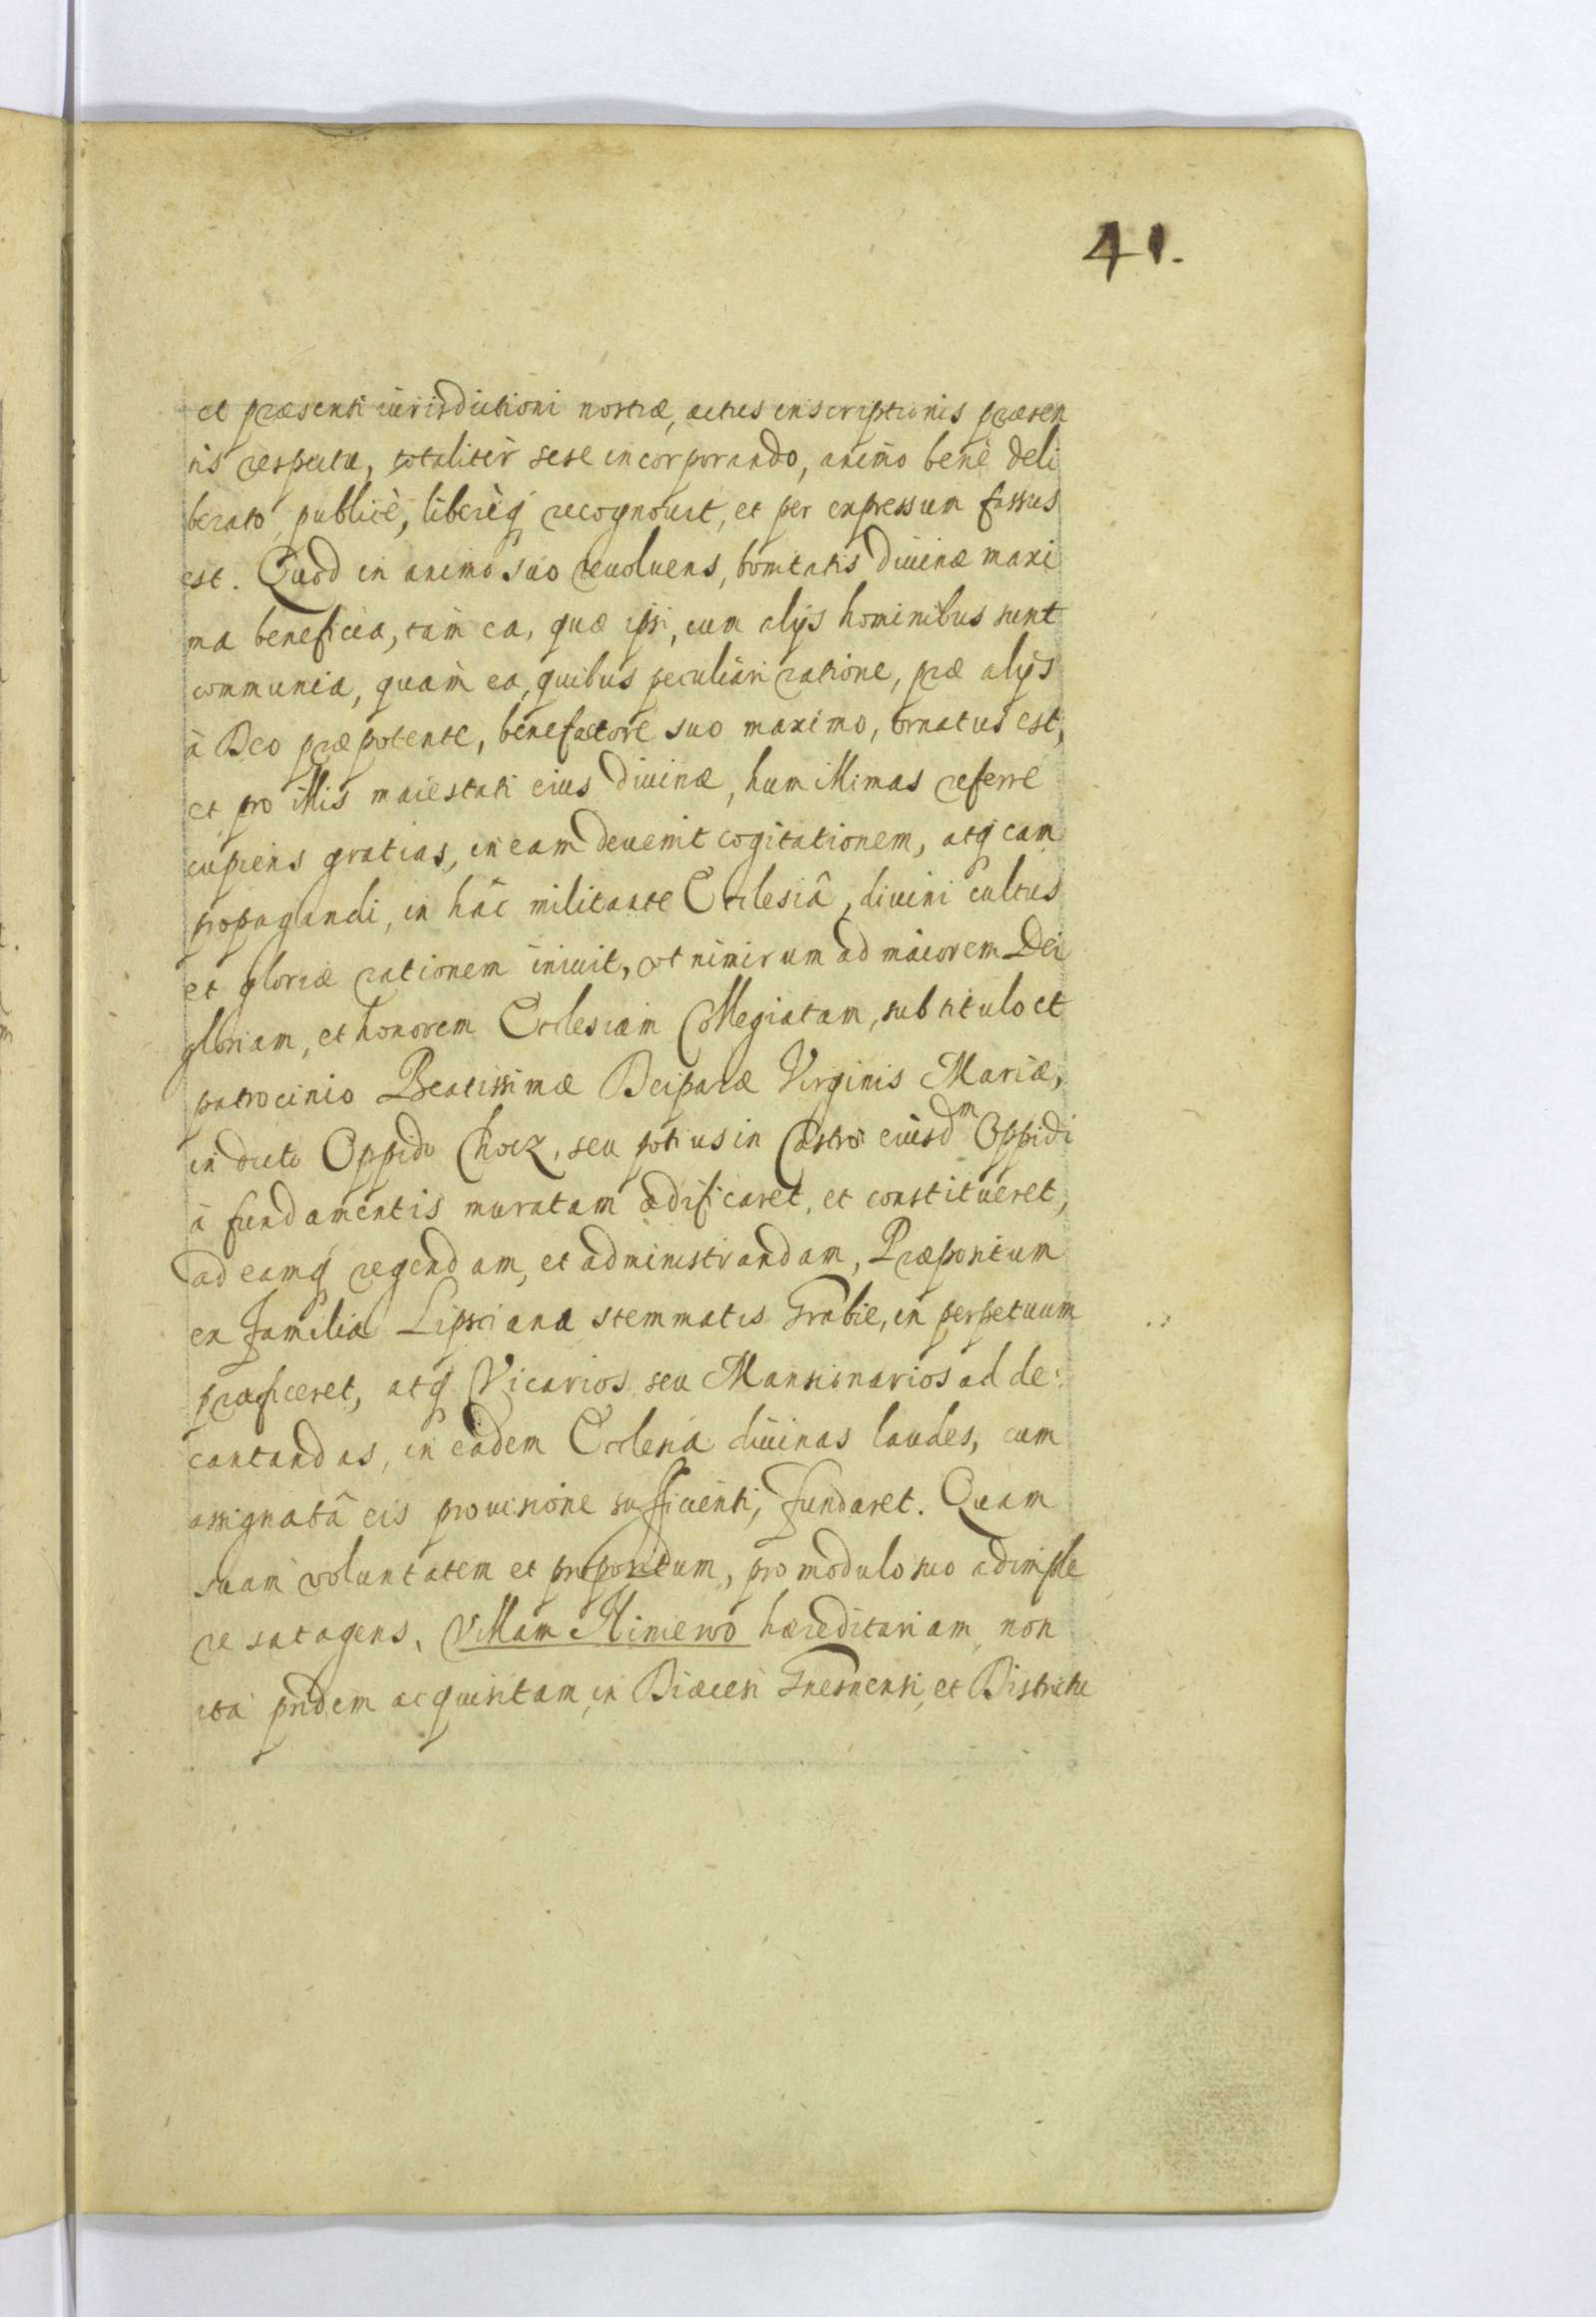 41.
et præsenti iurisdictioni nostræ, actus inscriptionis præsen
tis respectu, totalitèr sese incorporando, animo benè deli
berato, publicè, liberèq́ recognouit, et per expressum fassus
est. Quod in animo suo reuoluens, bonitatis diuinæ maxi
ma beneficia, tàm ea, quæ ipsi, cum alijs hominibus sunt
communia, quàm ea, quibus peculiari ratione, præ alijs
à Deo præpotente, benefactore suo maximo, ornatus est,
et pro illis maiestati eius diuinæ, humillimas referre
cupiens gratias, in eam deuenit cogitationem, atq́ eam
propagandi, in hâc militante Ecclesiâ, diuini cultus
et gloriæ rationem iniuit, vt nimirum ad maiorem Dei
gloriam, et honorem Ecclesiam Collegiatam, sub titulo et
patrocinio Beatissimæ Deiparæ Virginis Mariæ,
in dicto Oppido Chocz, seu potius in Castro eiusdm Oppidi
à fundamentis muratam ædificaret, et constitueret,
ad eamq́ regendam, et administrandam, Præpositum
ex familia Lipsciana stemmatis Grabie, in perpetuum
præficeret, atq́ Vicarios seu Mansionarios ad de:
cantandas, in eâdem Ecclesia diuinas laudes, cum
assignatâ eis prouisione sufficienti, fundaret. Quam
suam voluntatem et propositum, pro modulo suo adimple
re satagens, Villam Niniewo hæreditariam, non
ita pridem acquisitam, in Diæcesi Gnesnensi, et Districtu